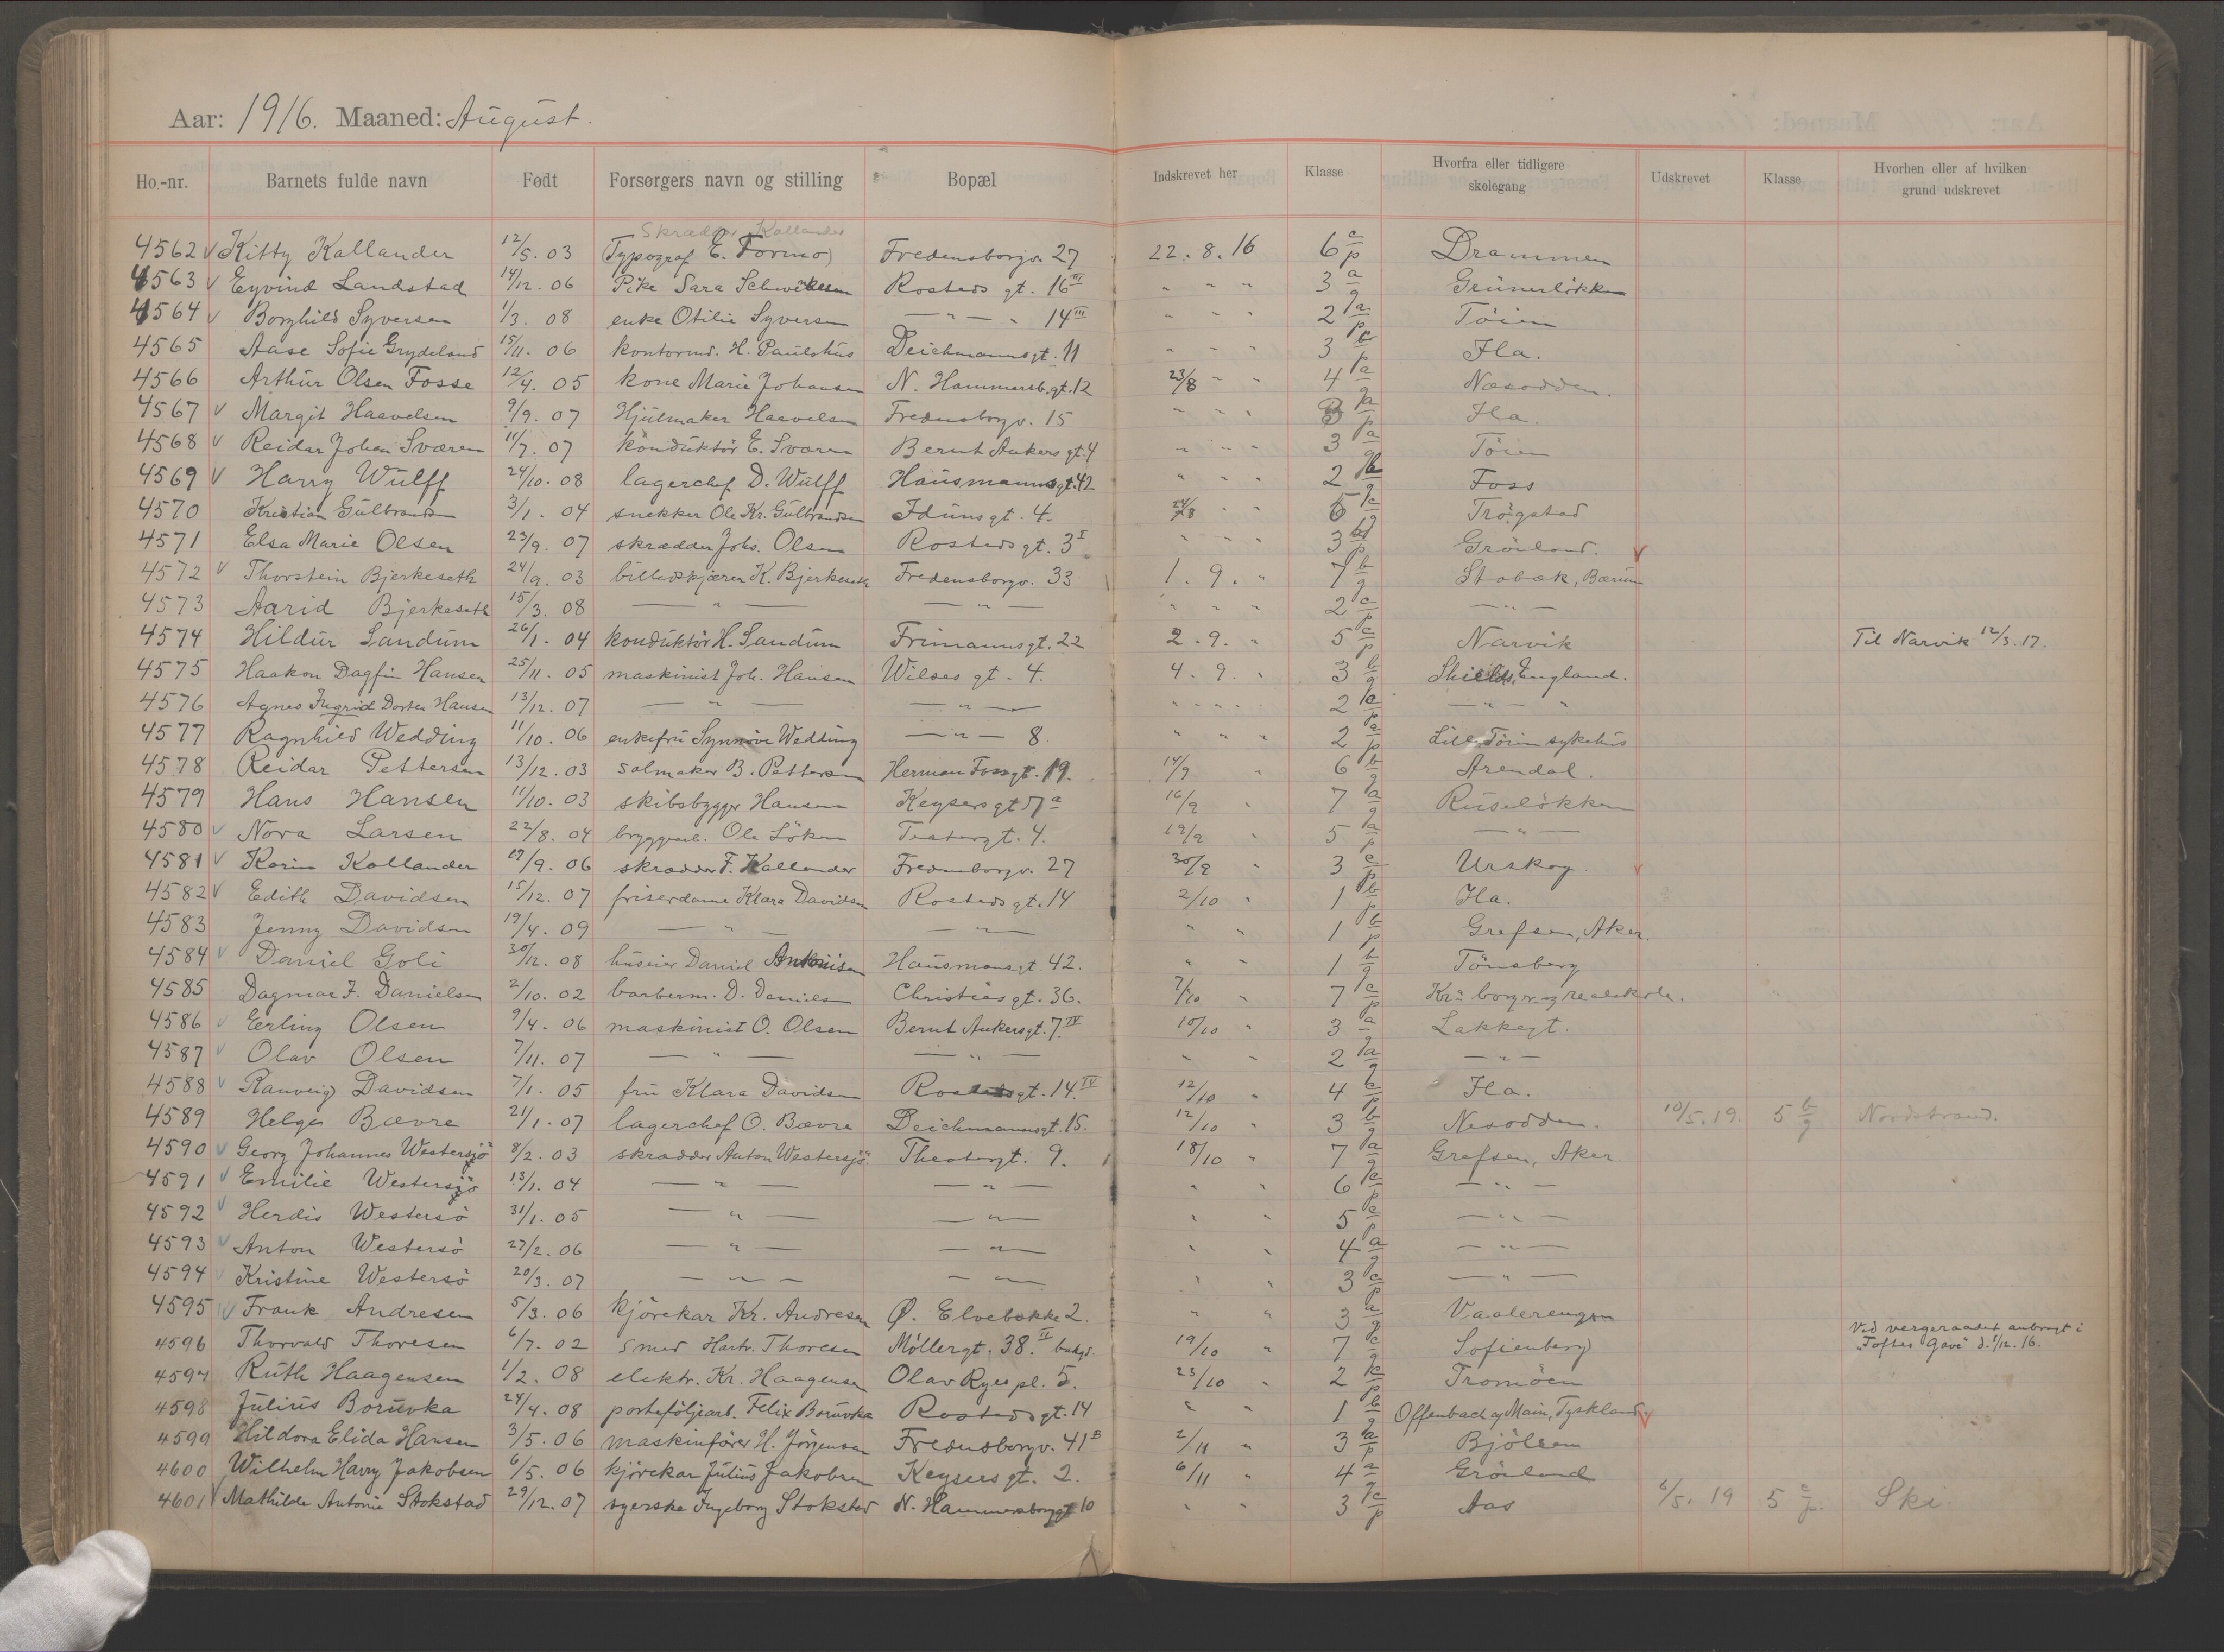 Aar: 1916. Maaned: August.
Ho.-nr. Barnets fulde navn Født Forsørgers navn og stilling Bopæl Indskrevet her Klasse Hvorfra eller tidligere skolegang Udskrevet Klasse Hvorhen eller af hvilken grund udskrevet
Skrædder Kallander
4562 v Kitty Kallander 12/5. 03 (Typograf E. Formo) Fredensborgv. 27 22. 8. 16 6 c/p Drammen
4563 v Eyvind Landstad 14/12. 06 Pike Sara Rosteds gt. 16 III " " " 3 a/g Grünerløkken
4564 v Borghild Syversen 1/3. 08 enke Otilie Syversen — " — " 14 III " " " 2 a/p Töien
4565 Aase Sofie Grydeland 15/11. 06 kontormd. H. Paulshus Deichmannsgt. 11 " " " 3 /p Ila.
4566 Arthur Olsen Fosse 12/4. 05 kone Marie Johansen N. Hammersb.gt. 12 23/8 " " 4 a/g Næsodden.
4567 v Margit Haavelsen 9/9. 07 Hjulmaker Haavelsen Fredensborgv. 15 " " " 3 a/p Ila.
4568 v Reidar Johan Sværen 11/7. 07 konduktör E. Sværen Bernt Ankers gt. 4 " " " 3 a/g Töien
4569 v Harry Wulff 24/10. 08 lagerchef D. Wulff Hausmannsgt. 42 " " " 2 b/g Foss
4570 Kristian Gulbrandsen 3/1. 04 snekker Ole Kr. Gulbrandsen Idunsgt. 4. 24/8 " " 6 c/g Trögstad
4571 Elsa Marie Olsen 23/9. 07 skrædder Johs. Olsen Rosteds gt. 3 I " " " 3 /p Grönland. v
4572 v Thorstein Bjerkeseth 24/9. 03 billedskjærer K. Bjerkeseth Fredensborgv. 33 1. 9. " 7 b/g Stabæk, Bærum
4573 Aarid Bjerkeseth 15/3. 08 — " — — " — " " " 2 c/p — " —
4574 Hildur Sandum 26/1. 04 konduktör H. Sandum Frimannsgt. 22 2. 9. " 5 c/p Narvik Til Narvik 12/3. 17.
4575 Haakon Dagfin Hansen 25/11. 05 maskinist Joh. Hansen Wilses gt. 4. 4. 9. " 3 b/g Shields, England.
4576 Agnes Ingrid Dortea Hansen 13/12. 07 — " — — " — " " " " 2 c/p — " — "
4577 Ragnhild Wedding 11/10. 06 enkefru Synnöve Wedding — " — 8. " " " 2 a/p Lille Töien sykehus
4578 Reidar Pettersen 13/12. 03 salmaker B. Pettersen Herman Fossgt. 19. 14/9 " 6 b/g Arendal.
4579 Hans Hansen 11/10. 03 skibsbygger Hansen Keysers gt. 7 a 16/9 " 7 a/g Ruselökken
4580 v Nora Larsen 22/8. 04 bryggearb. Ole Löken Teatergt. 4. 19/9 " 5 a/p — " —
4581 v Karin Kallander /9. 06 skrædder F. Kallander Fredensborgv. 27 30/9 " 3 c/p Urskog v
4582 v Edith Davidsen 15/12. 07 friserdame Klara Davidsen Rosteds gt. 14 2/10 " 1 b/p Ila.
4583 Jenny Davidsen 19/4. 09 — " — — " — " " 1 b/p Grefsen, Aker.
4584 v Daniel Goli 30/12. 08 huseier Daniel Antonisen Hausmansgt. 42. " " 1 b/g Tönsberg
4585 Dagmar F. Danielsen 2/10. 02 barberm. D. Danielsen Christies gt. 36. 7/10 " 7 c/p Kr.a borger- og realskole.
4586 v Erling Olsen 9/4. 06 maskinist O. Olsen Bernt Ankersgt. 7. IV 10/10 " 3 a/g Lakkegt.
4587 v Olav Olsen 7/11. 07 — " — — " — " " 2 a/g — " —
4588 v Ranveig Davidsen 7/1. 05 fru Klara Davidsen Rostedsgt. 14. IV 12/10 " 4 b/p Ila.
4589 Helge Bævre 21/1. 07 lagerchef O. Bævre Deichmannsgt. 15. 12/10 " 3 b/g Nesodden. 10/5. 19. 5 b/g Nordstrand.
4590 v Georg Johannes Westersjö 8/2. 03 skrædder Anton Westersjö Theatergt. 9. 18/10 " 7 a/g Grefsen, Aker.
4591 v Emilie Westersjö 13/1. 04 — " — — " — " " 6 c/p — " —
4592 v Herdis Westersö 31/1. 05 — " — — " — " " 5 c/p — " —
4593 v Anton Westersö 27/2. 06 — " — — " — " " 4 a/g — " —
4594 v Kristine Westersö 20/3. 07 — " — — " — " " 3 c/p — " —
4595 v Frank Andresen 5/3. 06 kjörekar Kr. Andresen Ø. Elvebakke 2. " " 3 a/g Vaalerengen
4596 Thorvald Thoresen 6/7. 02 smed Hartv. Thoresen Møllergt. 38. II bakgd. 19/10 " 7 c/g Sofienberg Ved vergeraadet anbragt i "Toftes Gave" d. 1/12. 16.
4597 Ruth Haagensen 1/2. 08 elektr. Kr. Haagensen Olav Ryes pl. 5. 23/10 " 2 c/p Tromöen
4598 Julius Boruvka 24/4. 08 porteföljearb. Felix Boruvka Rosteds gt. 14 " " 1 b/g Offenbach a/ Main, Tyskland v
4599 Hildora Elida Hansen 3/5. 06 maskinförer H. Jörgensen Fredensborgv. 41 B 2/11 " 3 a/p Bjölsen
4600 Wilhelm Harry Jakobsen 6/5. 06 kjörekar Julius Jakobsen Keysers gt. 2. 6/11 " 4 a/g Grönland
4601 v Mathilde Antonie Stokstad 29/12. 07 syerske Ingeborg Stokstad N. Hammersborggt 10 " " 3 c/p Aas 6/5. 19 5 c/p. Ski